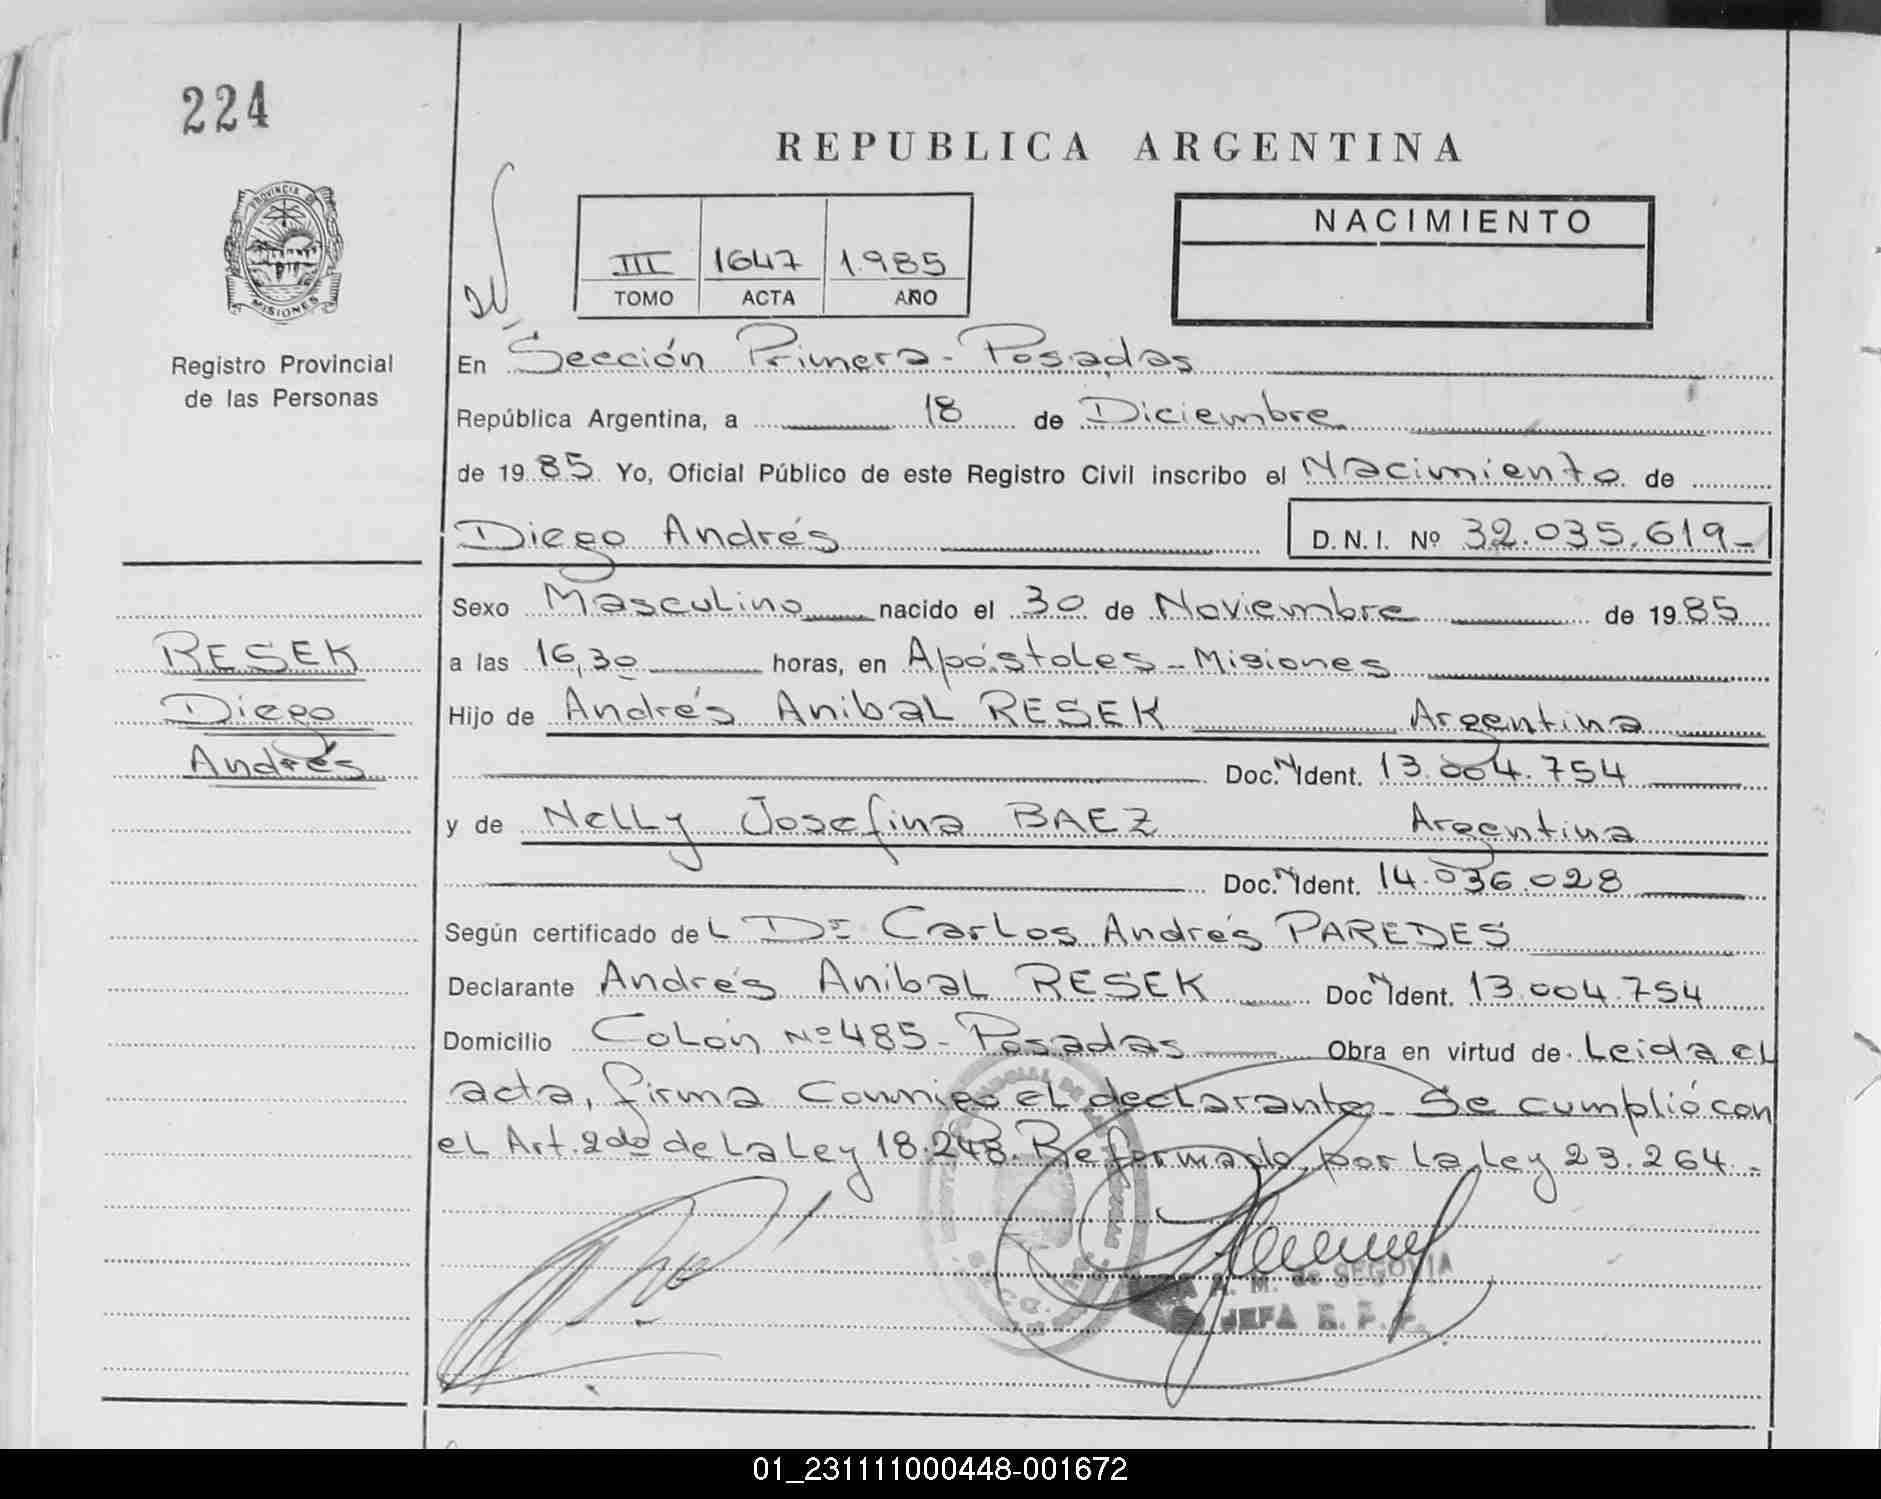 224
REPUBLICA ARGENTINA
PROVINCIA DE
MISIONES
Registro Provincial
de las Personas
III 1647 1.985
TOMO ACTA AÑO
NACIMIENTO
En Sección Primera - Posadas
República Argentina, a 18 de Diciembre
de 1985 Yo, Oficial Público de este Registro Civil inscribo el Nacimiento de
Diego Andrés D.N.I. Nº 32.035.619-
Sexo Masculino nacido el 30 de Noviembre de 1985
RESEK
Diego
Andrés
a las 16,30 horas, en Apóstoles - Misiones
Hijo de Andrés Anibal RESEK Argentina
Doc. N Ident. 13.004.754
y de Nelly Josefina BAEZ Argentina
Doc. N Ident. 14.036.028
Según certificado del Dr Carlos Andrés PAREDES
Declarante Andrés Anibal RESEK Doc N Ident. 13.004.754
Domicilio Colón Nº 485 - Posadas Obra en virtud de Leida el
acta, firma conmigo el declarante. Se cumplió con
el Art. 2do de la Ley 18.248. Reformado por la Ley 23.264.-
A. M. de SEGOVIA
JEFA
01_231111000448-001672